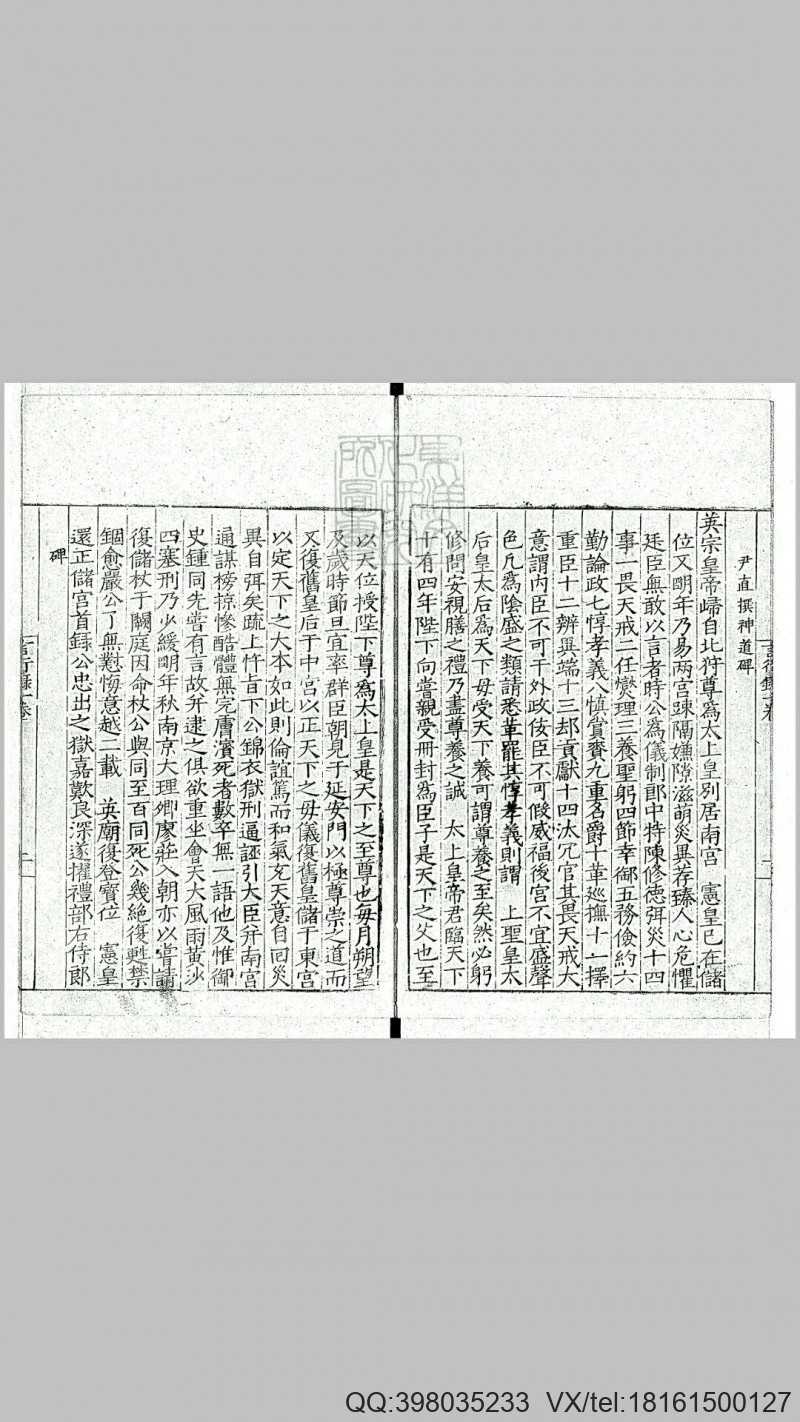 尹直撰神道碑
英宗皇帝歸自北狩尊爲太上皇別居南宮　憲皇已在儲
位又明年乃易兩宮踈隔嫌隙滋萌災異荐臻人心危懼
廷臣無敢以言者時公爲儀制郎中特陳修德弭災十四
事一畏天戒二任爕理三養聖躬四節幸御五務儉約六
勤論政七惇孝義八慎賞賚九重名爵十革廵撫十一擇
重臣十二辨異端十三却貢獻十四汰冗官其畏天戒大
意謂内臣不可干外政佞臣不可假威福後宮不宜盛聲
色凢爲陰盛之類請悉革罷其惇孝義則謂　上聖皇太
后皇太后爲天下母受天下養可謂尊養之至矣然必躬
修問安視膳之禮乃盡尊養之誠　太上皇帝君臨天下
十有四年陛下向嘗親受冊封爲臣子是天下之父也至
以天位授陛下尊爲太上皇是天下之至尊也毎月朔望
及歲時節旦宜率群臣朝見于延安門以極尊崇之道而
又復舊皇后于中宮以正天下之母儀復舊皇儲于東宮
以定天下之大本如此則倫誼篤而和氣充天意自回災
異自弭矣疏上忤旨下公錦衣獄刑逼誣引大臣并南宮
通謀榜掠慘酷體無完膚濵死者數卒無一語他及惟御
史鍾同先甞有言故并逮之俱欲重坐會天大風雨黃沙
四塞刑乃少緩明年秋南京大理卿廖莊入朝亦以嘗請
復儲杖于闕庭因命杖公與同至百同死公幾絶復甦禁
錮愈嚴公了無懟悔意越二載　英廟復登寶位　憲皇
還正儲宮首録公忠出之獄嘉歎良深遂擢禮部右侍郎
碑
言行錄　卷
二
QQ:398035233 VX/tel:18161500127